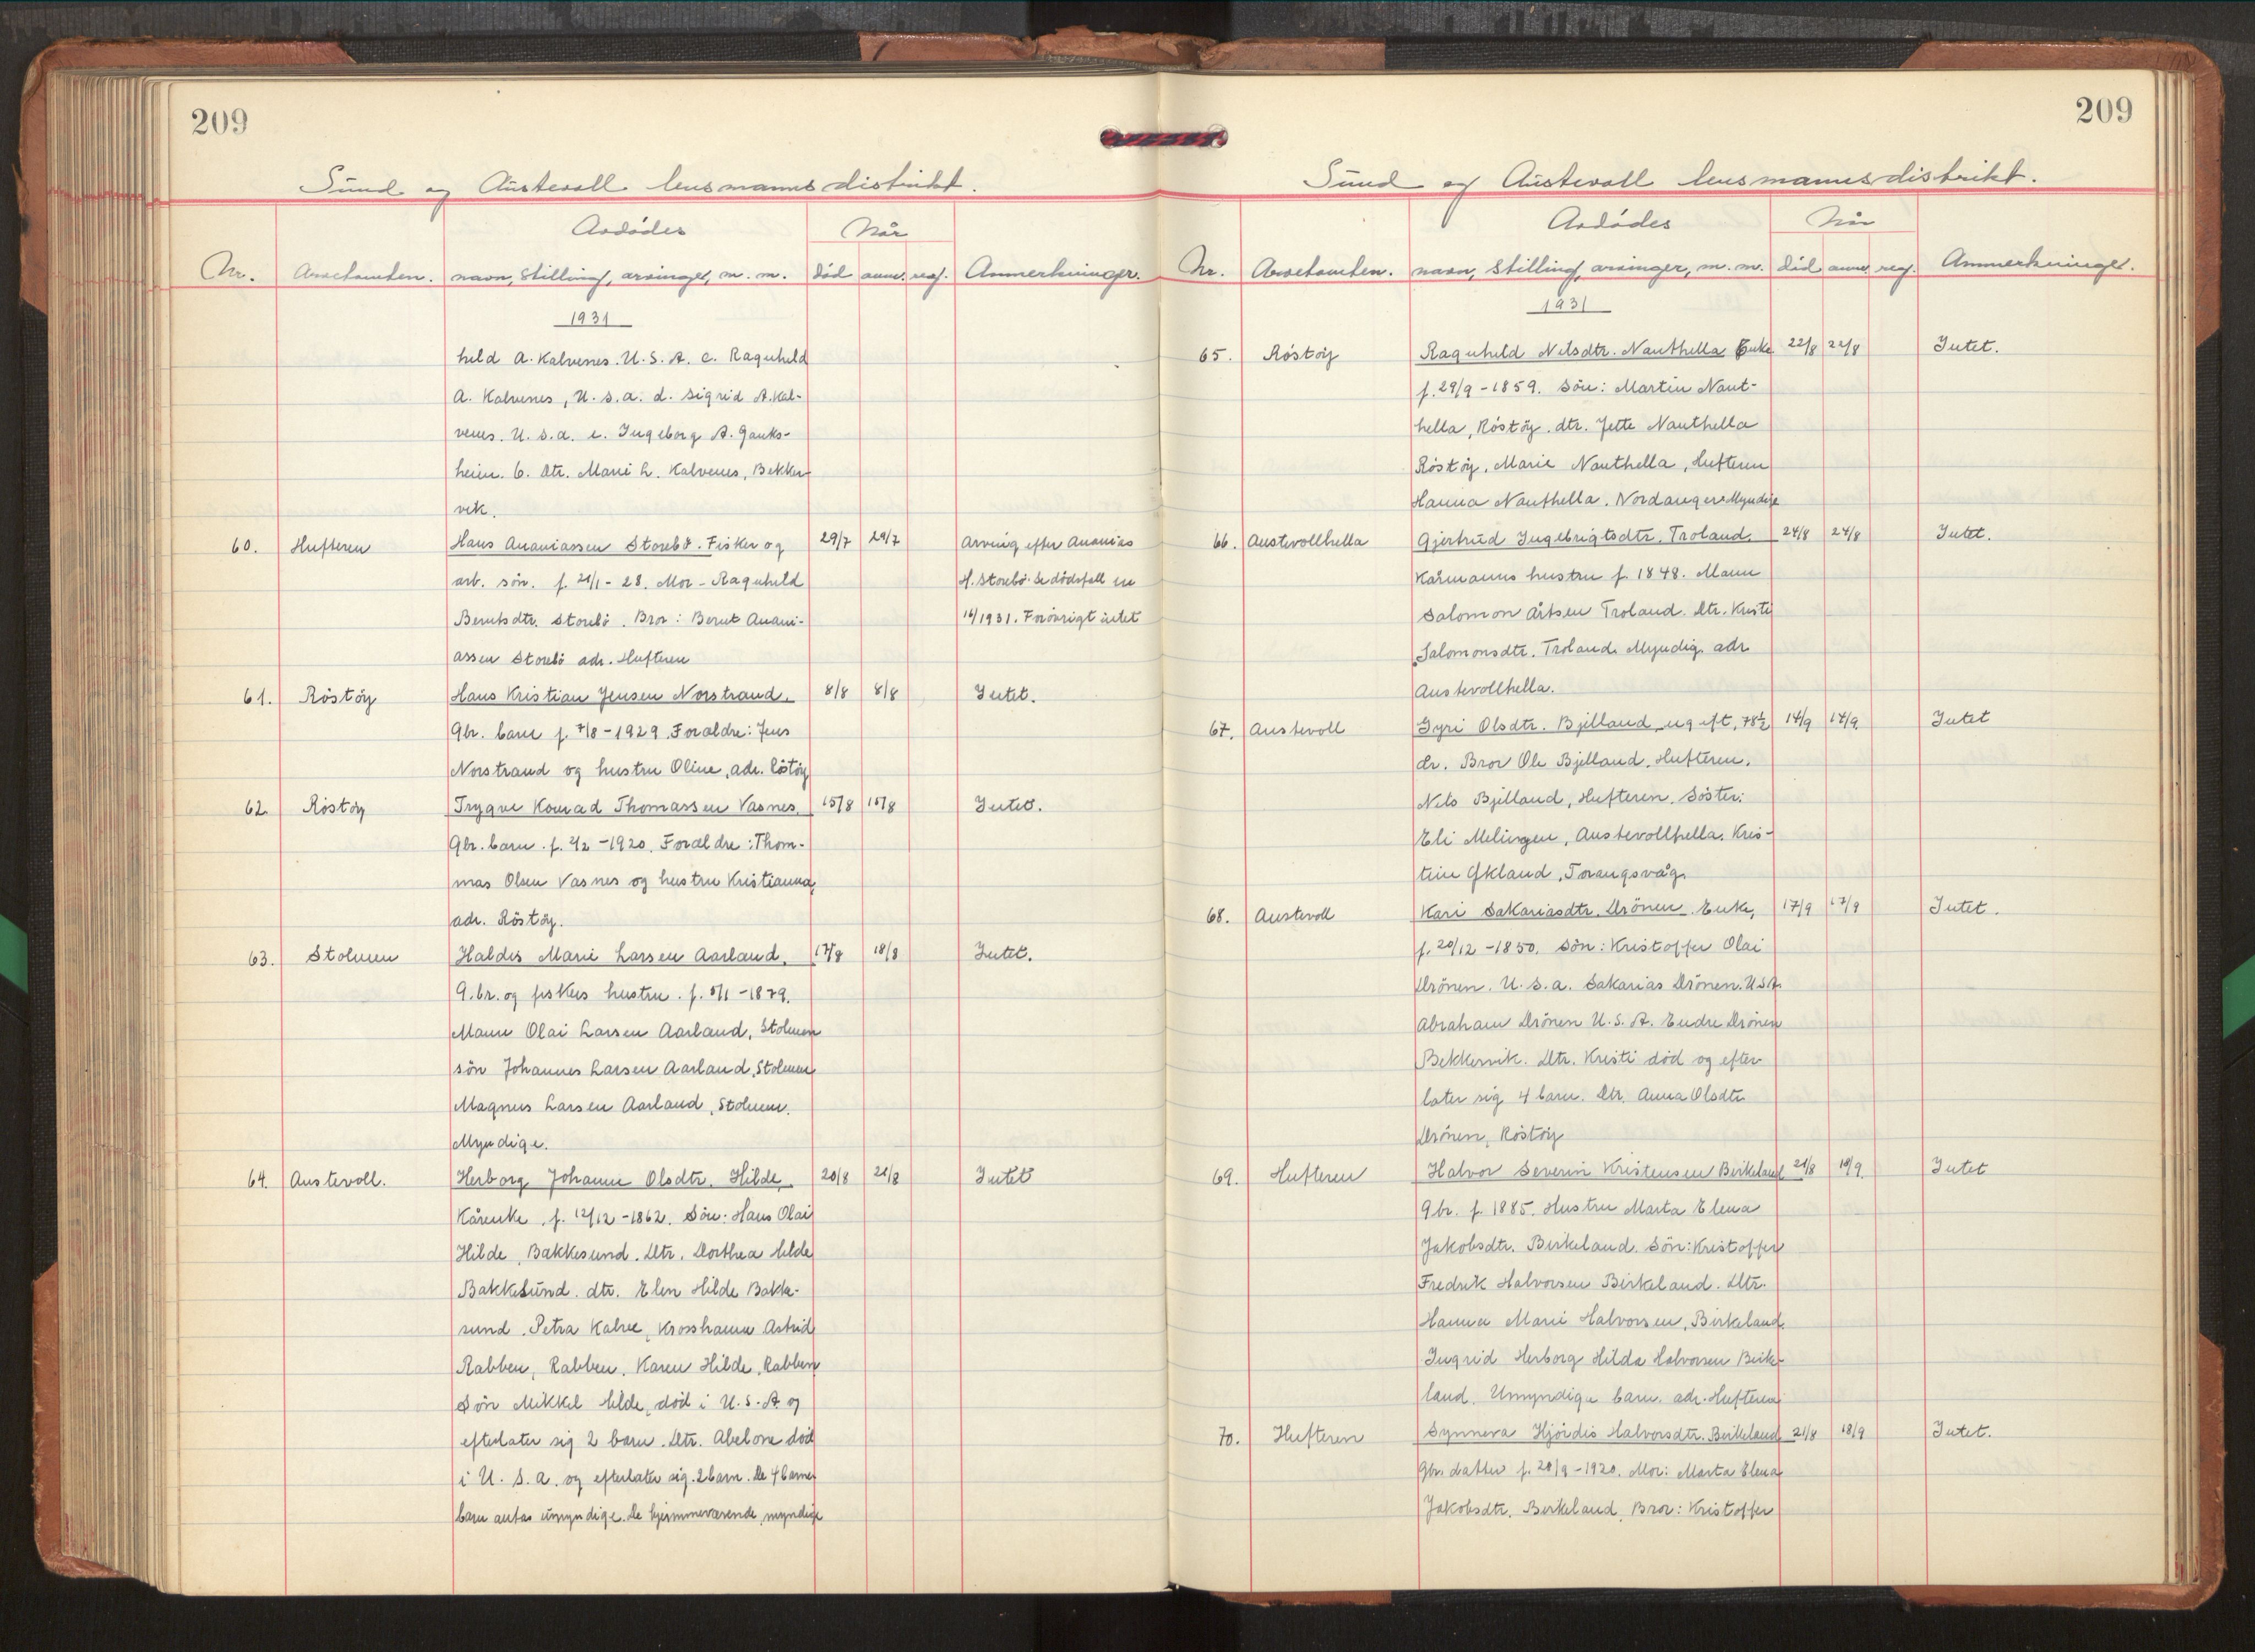 209
Sund og Austevoll lensmannsdistrikt.
Avdødes
Når
Nr. Avsetomten. navn, stilling, arvinger, m. m. død anm. reg. Anmerkninger.
1931
hild A. Kalvenes. U.S.A. c. Ragnhild
A. Kalvenes, U.S.A. d. Sigrid A. Kal-
venes. U.S.A. e. Ingeborg A. Gauks-
heim. 6. dtr. Marie L. Kalvenes, Bekker-
vik.
60. Hufteren Hans Ananiassen Storebø. Fisker og 29/7 29/7 Arving efter Ananias
arb. søn. f. 21/1 - 28. Mor - Ragnhild H. Storebø. Se dødsfall nr
Berntsdtr. Storebø. Bror: Bernt Anani- 16/1931. Forøvrigt intet
assen Storebö adr. Hufteren
61. Röstöy Hans Kristian Jensen Norstrand. 8/8 8/8 Intet.
Gbr. barn f. 7/8 - 1929. Foraldre: Jens
Norstrand og hustru Oline, adr. Röstöy
62. Röstöy Trygve Konrad Thomassen Vasnes. 15/8 15/8 Intet.
Gbr. barn. f. 2/2 - 1920. Foraldre: Thom-
mas Olsen Vasnes og hustru Kristianna,
adr. Röstöy.
63. Stolmen Haldis Marie Larsen Aarland. 17/8 18/8 Intet.
G.br. og fiskers hustru. f. 5/1 - 1879.
Mann Olai Larsen Aarland, Stolmen
sön Johannes Larsen Aarland, Stolmen
Magnus Larsen Aarland, Stolmen.
Myndige.
64. Austevoll. Herborg Johanne Olsdtr. Hilde. 20/8 21/8 Intet
Kårenke. f. 12/12 - 1862. Sön: Hans Olai
Hilde, Bakkesund. Dtr. Dorthea Hilde
Bakkesund. dtr. Elen Hilde Bakke-
sund. Petra Kalve, Krosshamn Astrid
Rabben, Rabben. Karen Hilde, Rabben
Sön Mikkel Hilde, död i U.S.A og
efterlater sig 2 barn. Dtr. Abelone död
i U.S.A. og efterlater sig 2 barn. De 4 barne-
barn antas umyndige. De hjemmeværende myndige
209
Sund og Austevoll lensmannsdistrikt.
Avdødes
Når
Nr. Avsetomten. navn, stilling, arvinger, m. m. død anm. reg. Anmerkninger.
1931
65. Röstöy Ragnhild Nilsdtr. Nauthella Enke 22/8 22/8 Intet.
f. 29/9 - 1859. Sön: Martin Naut-
hella, Röstöy. dtr. Jette Nauthella
Röstöy. Marie Nauthella, Hufteren
Hanna Nauthella. Nordanger. Myndige
66. Austevollhella Gjertrud Ingebrigtsdtr. Troland. 24/8 24/8 Intet.
Kårmanns hustru f. 1848. Mann
Salomon Årtsen Troland. Dtr. Kristi
Salomonsdtr. Troland. Myndig. adr
Austevollhella.
67. Austevoll Gyri Olsdtr. Bjelland ugift, 78½ 14/9 14/9. Intet
år. Bror Ole Bjelland, Hufteren.
Nils Bjelland, Hufteren. Söster:
Eli Melingen, Austevollhella. Kris-
tine Økland, Torangsvåg.
68. Austevoll Kari Sakariasdtr. Drönen. Enke, 17/9 17/9 Intet.
f. 20/12 - 1850. Sön: Kristoffer Olai
Drönen. U.S.A. Sakarias Drönen. U.S.A.
Abraham Drönen U.S.A. Endre Drönen
Bekkervik. Dtr. Kristi död og efter
later sig 4 barn. Dtr. Anna Olsdtr.
Drönen, Röstöy
69. Hufteren Halvor Severin Kristensen Birkeland 21/8 18/9. Intet
Gbr. f. 1885. Hustru Marta Elena
Jakobsdtr. Birkeland. Sön: Kristoffer
Fredrik Halvorsen Birkeland. Dtr.
Hanna Marie Halvorsen, Birkeland.
Ingrid Herborg Hilda Halvorsen Birke-
land. Umyndige barn. adr. Hufteren
70. Hufteren Synneva Hjördis Halvorsdtr. Birkeland 21/8 18/9 Intet.
Gbr. datter f. 20/9 - 1920. Mor: Marta Elena
Jakobsdtr. Birkeland, Bror: Kristoffer